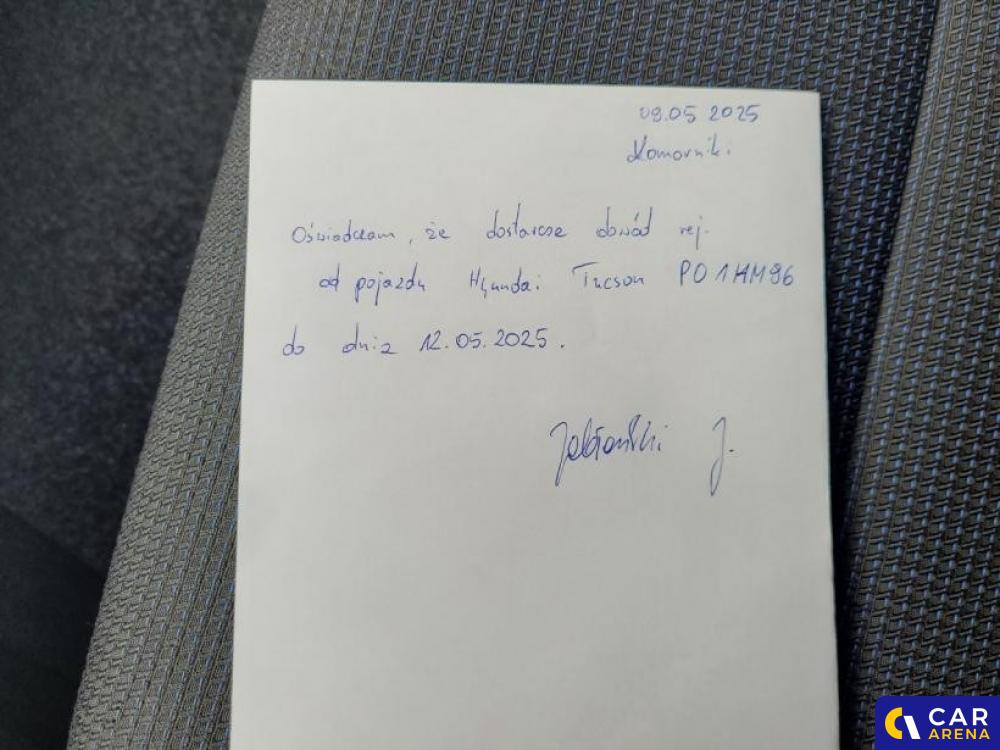 09.05 2025
Komorniki
Oświadczam, że dostarcze dowód rej.
od pojazdu Hyundai Tucson PO1HM96
do dnia 12.05.2025.
Jabłoński J.
CAR
ARENA